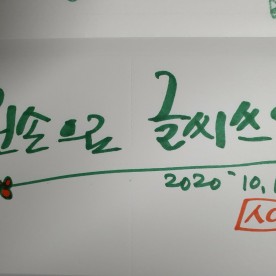 왼손으로 글씨쓰
2020-10.1